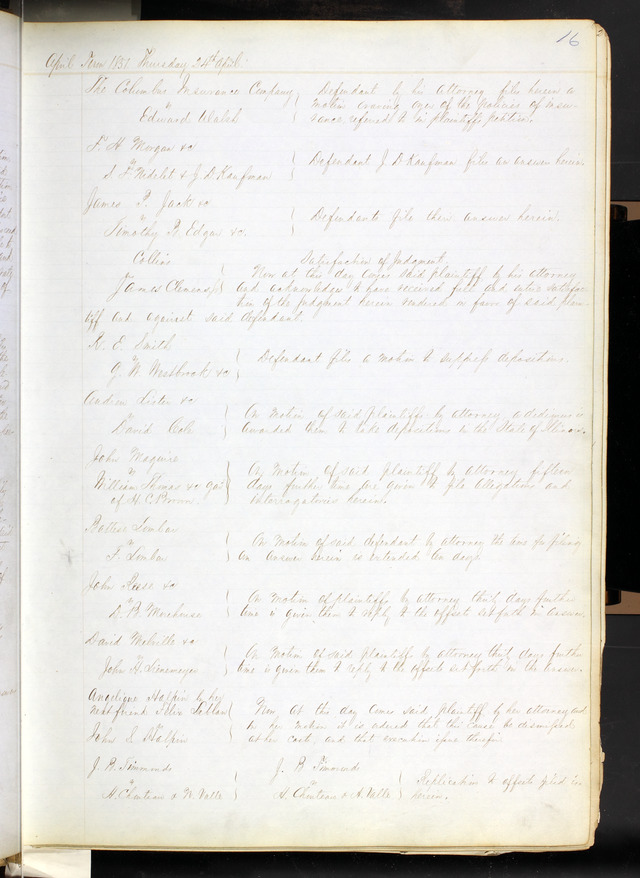 16
April Term 1851 Thursday 24th April
The Columbus Insurance Company } Defendant by his Attorney files herein a
vs motion craving oyer of the policies of insu-
Edward Walsh rance referred to in plaintiffs petition.
H Morgan &c
vs } Defendant J D Kaufman files an answer herein
& J D Kaufman
James P. Jack &c
vs } Defendants file their answer herein.
Timothy R. Edgar &c.
Collins Satisfaction of Judgment
vs } Now at this day comes said plaintiff by his attorney
James Clemens Jr and acknowledges to have received full and entire satisfac-
tion of the judgment herein rendered in favor of said plain-
tiff and against said defendant.
R. E. Smith
vs } Defendant files a motion to suppress depositions.
G. W. Westbrook &c
Andrew Lister &c
vs } On motion of said plaintiffs by attorney, a dedimus is
David Cole awarded them to take depositions in the State of Illinois.
John Maguire
vs } On motion of said plaintiff by attorney fifteen
William Thomas &c gar days further time are given to file allegations and
of H. C. Brown interrogatories herein.
vs } On motion of said defendant by attorney the time for filing
an answer herein is extended ten days
John Reese &c
vs } On motion of plaintiffs by attorney thirty days further
D. B. Morehouse time is given them to reply to the offsets set forth in answer.
David Melville &c
vs } On motion of said plaintiffs by attorney thirty days further
John H. time is given them to reply to the offsets set forth in the answer.
Angelique Halpin by her
next friend Felix } Now at this day comes said plaintiff by her attorney and
vs on her motion it is ordered that this cause be dismissed
John S. Halpin at her cost, and that execution issue therefor
J. B. Simmonds J. B. Simonds
vs } vs } Replication to offsets filed
H. Chouteau & N. Valle H. Chouteau & N. Valle herein.